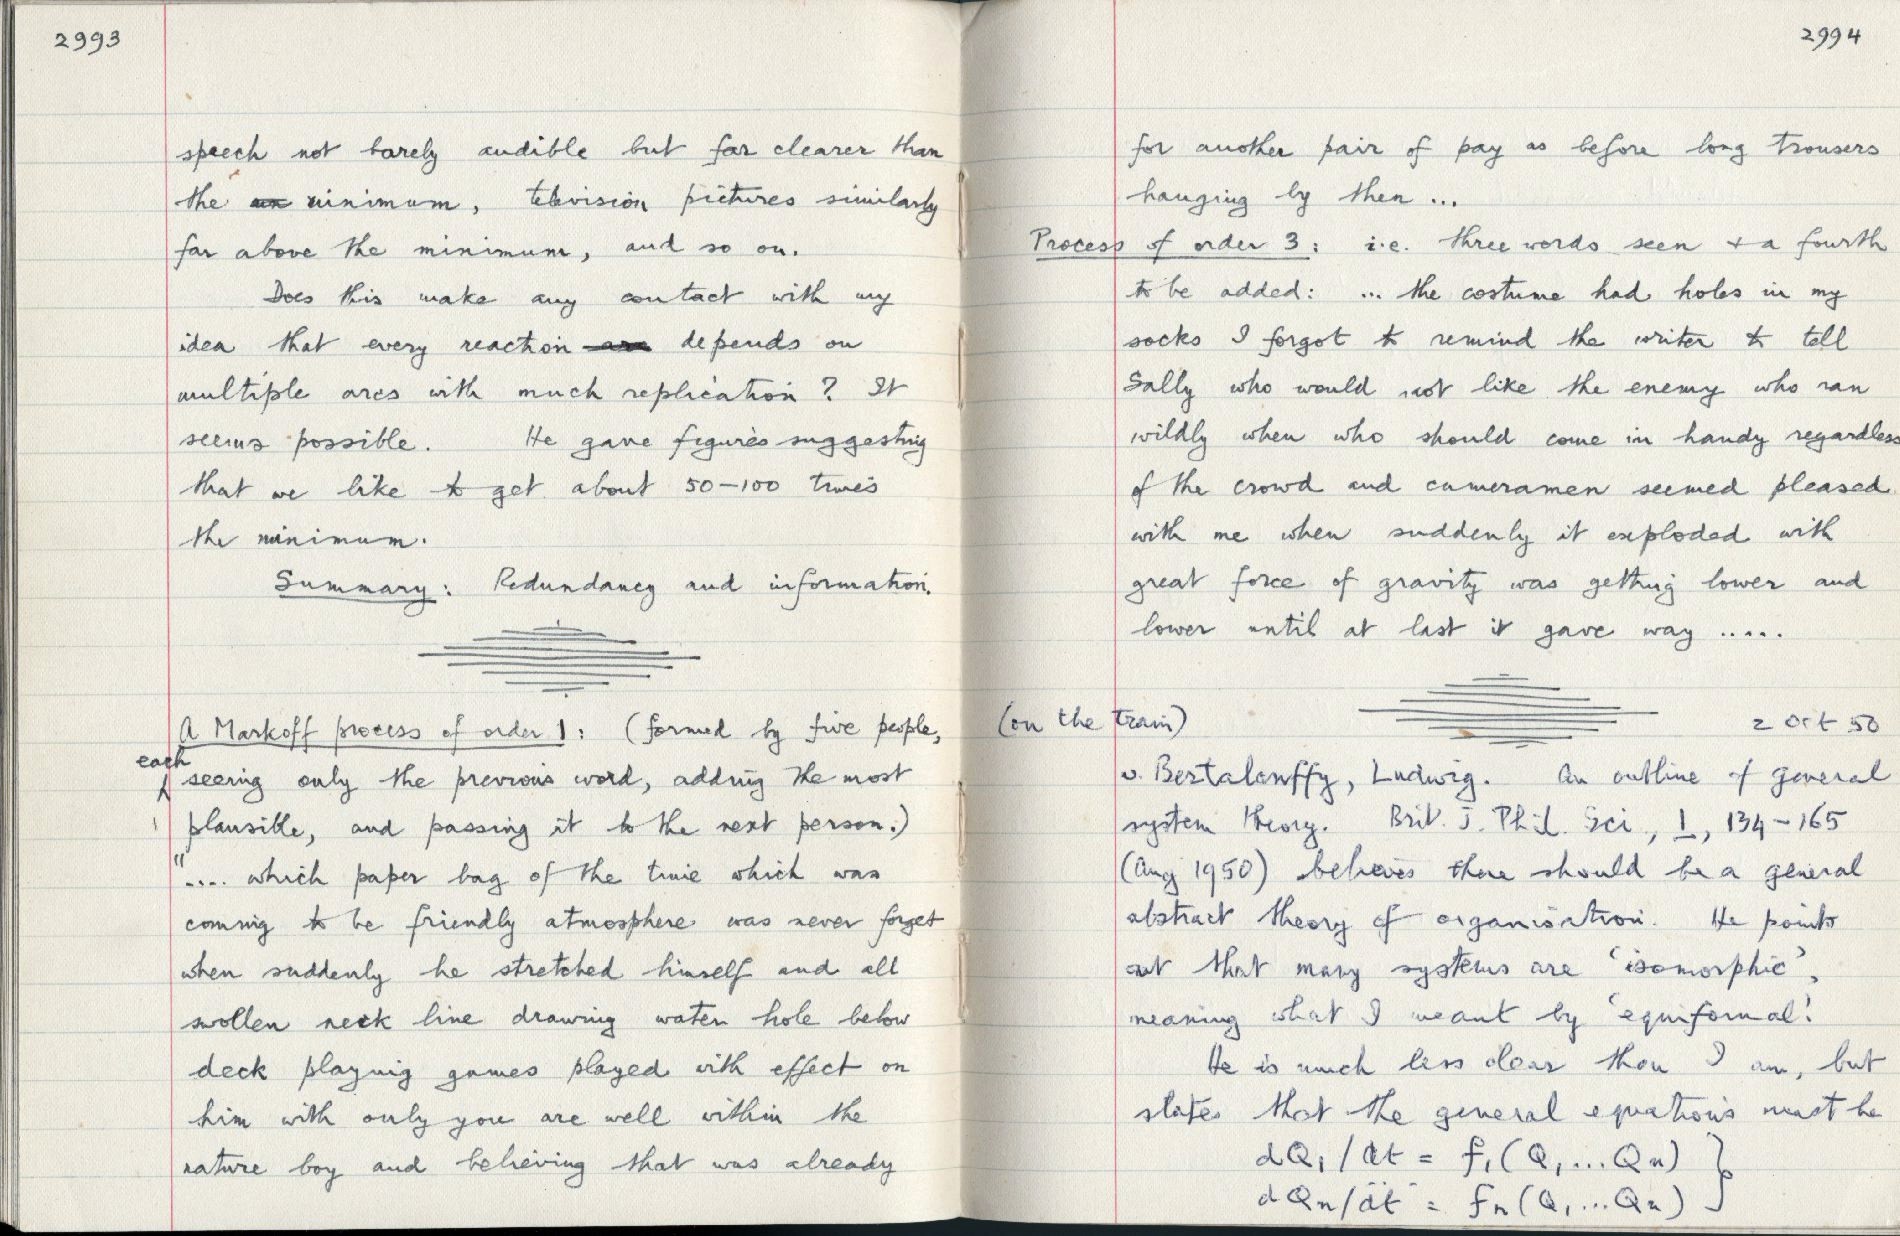 2993
speech not barely audible but far clearer than
the minimum, television pictures similarly
far above the minimum, and so on.
Does this make any contact with my
idea that every reaction depends on
multiple arcs with much replication? It
seems possible. He gave figures suggesting
that we like to get about 50–100 times
the minimum.
Summary: Redundancy and information.
A Markoff process of order 1: (formed by five people,
each
seeing only the previous word, adding the most
plausible, and passing it to the next person.)
".... which paper bag of the time which was
coming to be friendly atmosphere was never forget
when suddenly he stretched himself and all
swollen neck line drawing water hole below
deck playing games played with effect on
him with only you are well within the
nature boy and believing that was already
2994
for another pair of pay as before long trousers
hanging by then ...
Process of order 3: i.e. three words seen + a fourth
to be added: ... the costume had holes in my
socks I forgot to remind the writer to tell
Sally who would not like the enemy who ran
wildly when who should come in handy regardless
of the crowd and cameramen seemed pleased
with me when suddenly it exploded with
great force of gravity was getting lower and
lower until at last it gave way .....
(on the train) 2 Oct 50
v. Bertalanffy, Ludwig. An outline of general
system theory. Brit. J. Phil. Sci., 1, 134–165
(Aug 1950) believes there should be a general
abstract theory of organisation. He points
out that many systems are 'isomorphic',
meaning what I meant by 'equiformal'.
He is much less clear than I am, but
states that the general equations must be
dQ₁/dt = f₁(Q₁...Qn) }
dQn/dt = fn(Q₁...Qn)